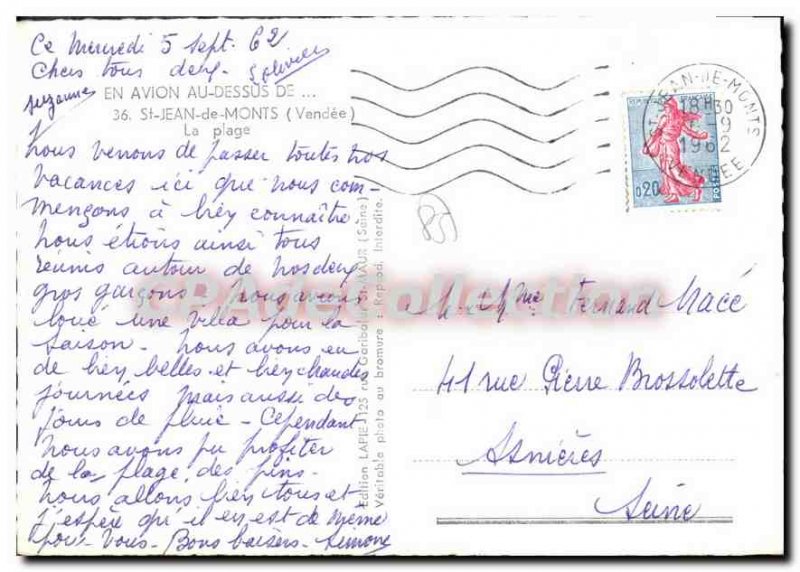 Ce Mercredi 5 Sept. 62
Chers tous deux.
Suzanne
EN AVION AU-DESSUS DE ...
36. St-JEAN-de-MONTS (Vendée)
La plage
Nous venons de passer toutes nos
vacances ici que nous com-
mençons à bien connaître.
Nous étions ainsi tous
réunis autour de nos deux
gros garçons. Nous avions
loué une villa pour la
saison. Nous avons eu
de bien belles et bien chaudes
journées mais aussi des
jours de pluie. Cependant
nous avons pu profiter
de la plage, des pins.
Nous allons bien tous et
j'espère qu'il en est de même
pour vous. Bons baisers. Simone
Edition LAPIE, 125 rue Garibaldi, St-MAUR (Seine)
Véritable photo au bromure : Reprod. Interdite.
85
ST-JEAN-DE-MONTS
18H30
5-9
1962
VENDEE
0,20
POSTES
M. et Mme Fernand Macé
41 rue Pierre Brossolette
Asnières
Seine
CPAdeCollection